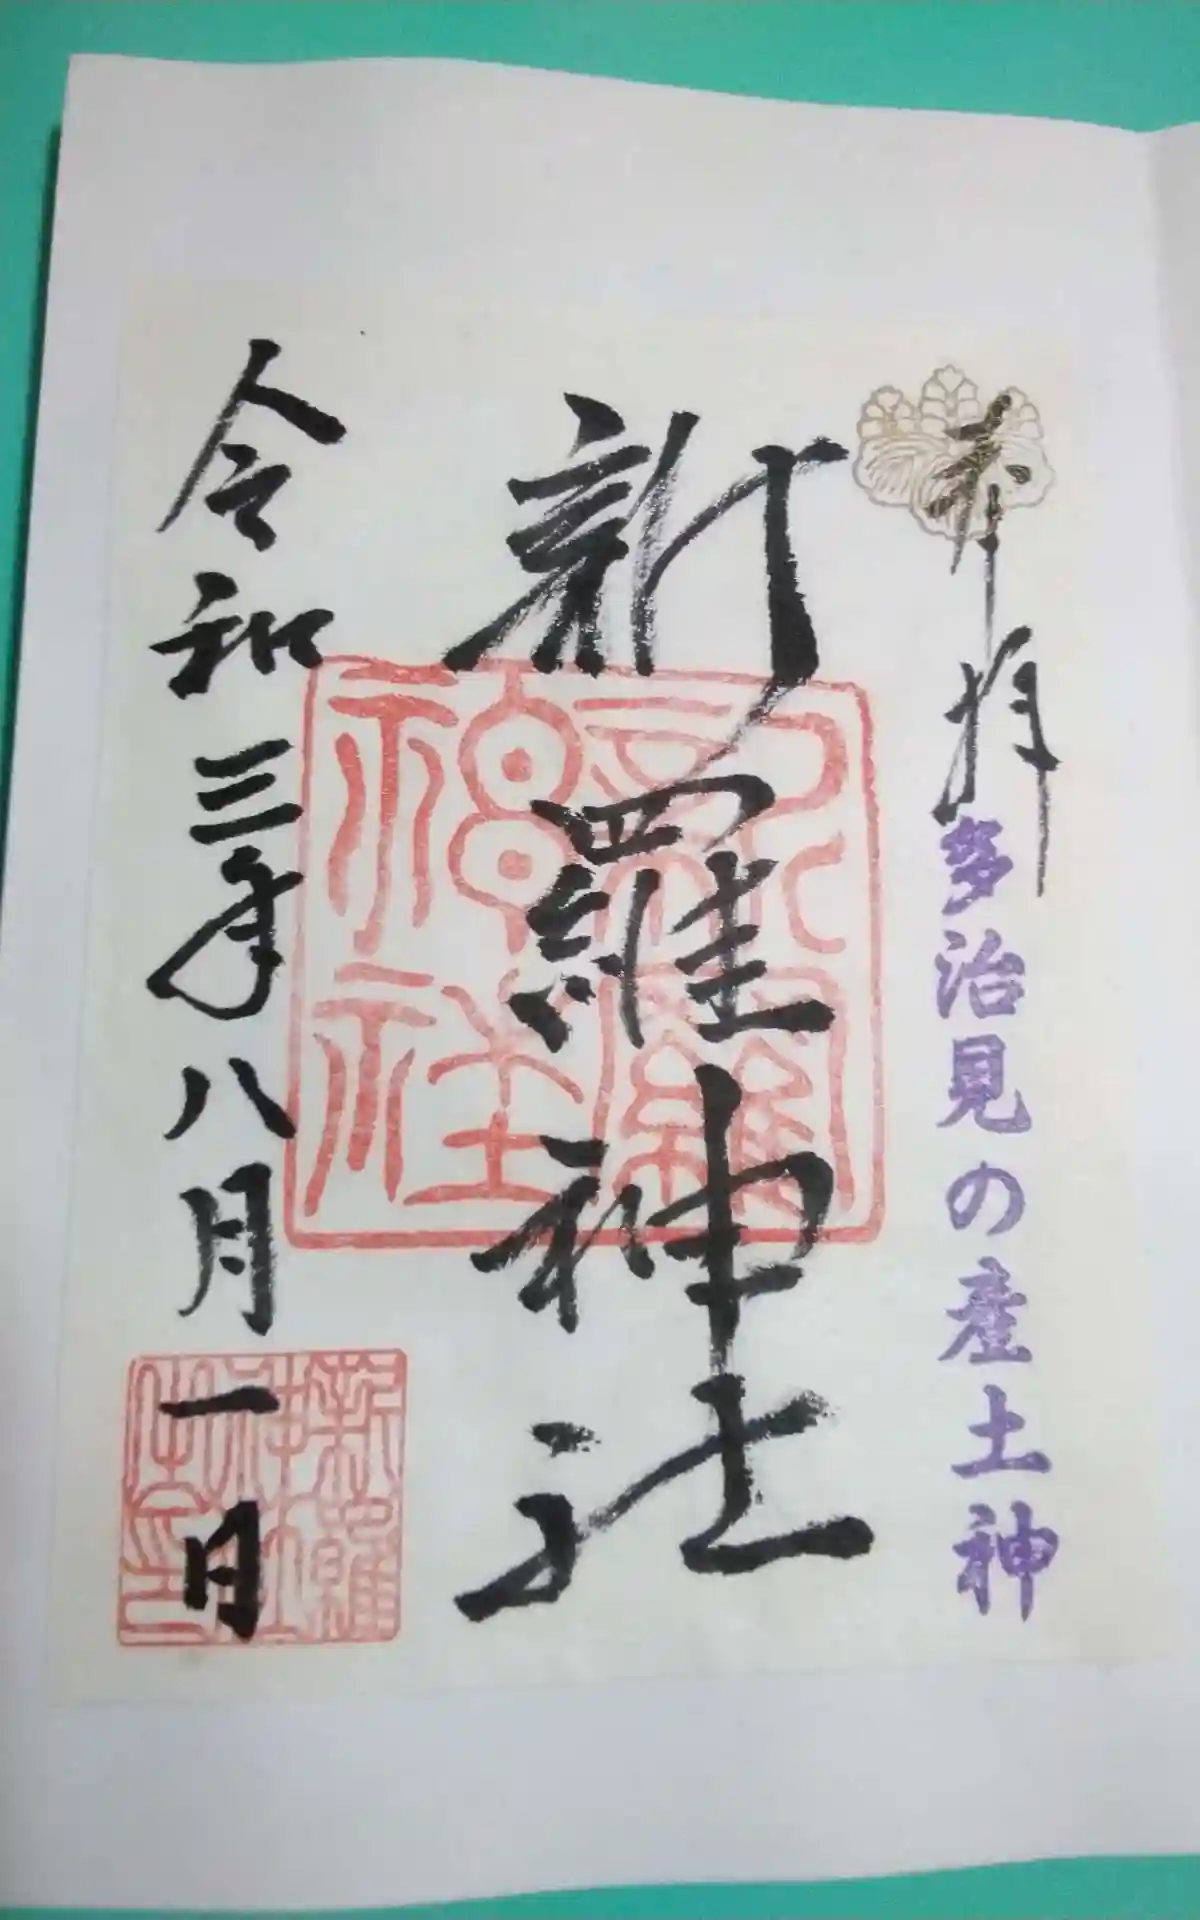 奉拝
多治見の産土神
新羅神社
新羅神社
令和三年八月一日
新羅
神社
之印